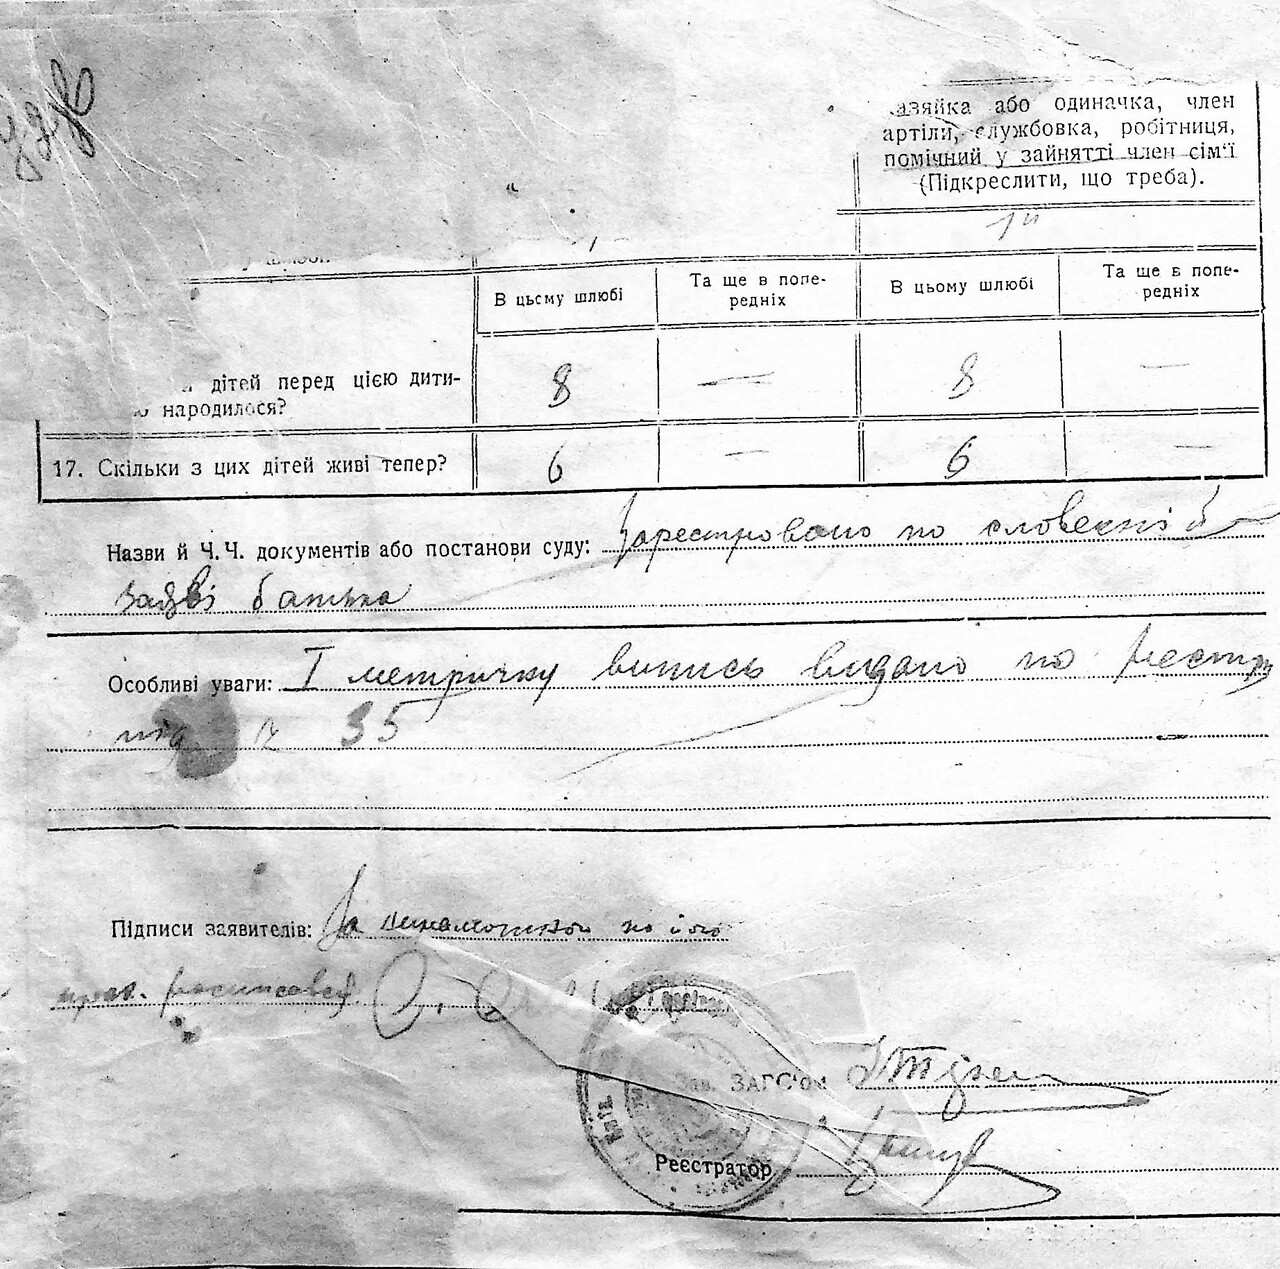 хазяйка або одиначка, член
артілі, службовка, робітниця,
помічний у зайнятті член сім'ї
(Підкреслити, що треба).
В цьому шлюбі
Та ще в попе-
редніх
В цьому шлюбі
Та ще в попе-
редніх
дітей перед цією дити-
ю народилося?
8 — 8 —
17. Скільки з цих дітей живі тепер? 6 — 6 —
Назви й Ч.Ч. документів або постанови суду: Зарестровано по словесній
заяві батька
Особливі уваги: І метричку випись видано по реєстру
35
Підписи заявителів: За
росписався
Зав. ЗАГС'ом
Реєстратор